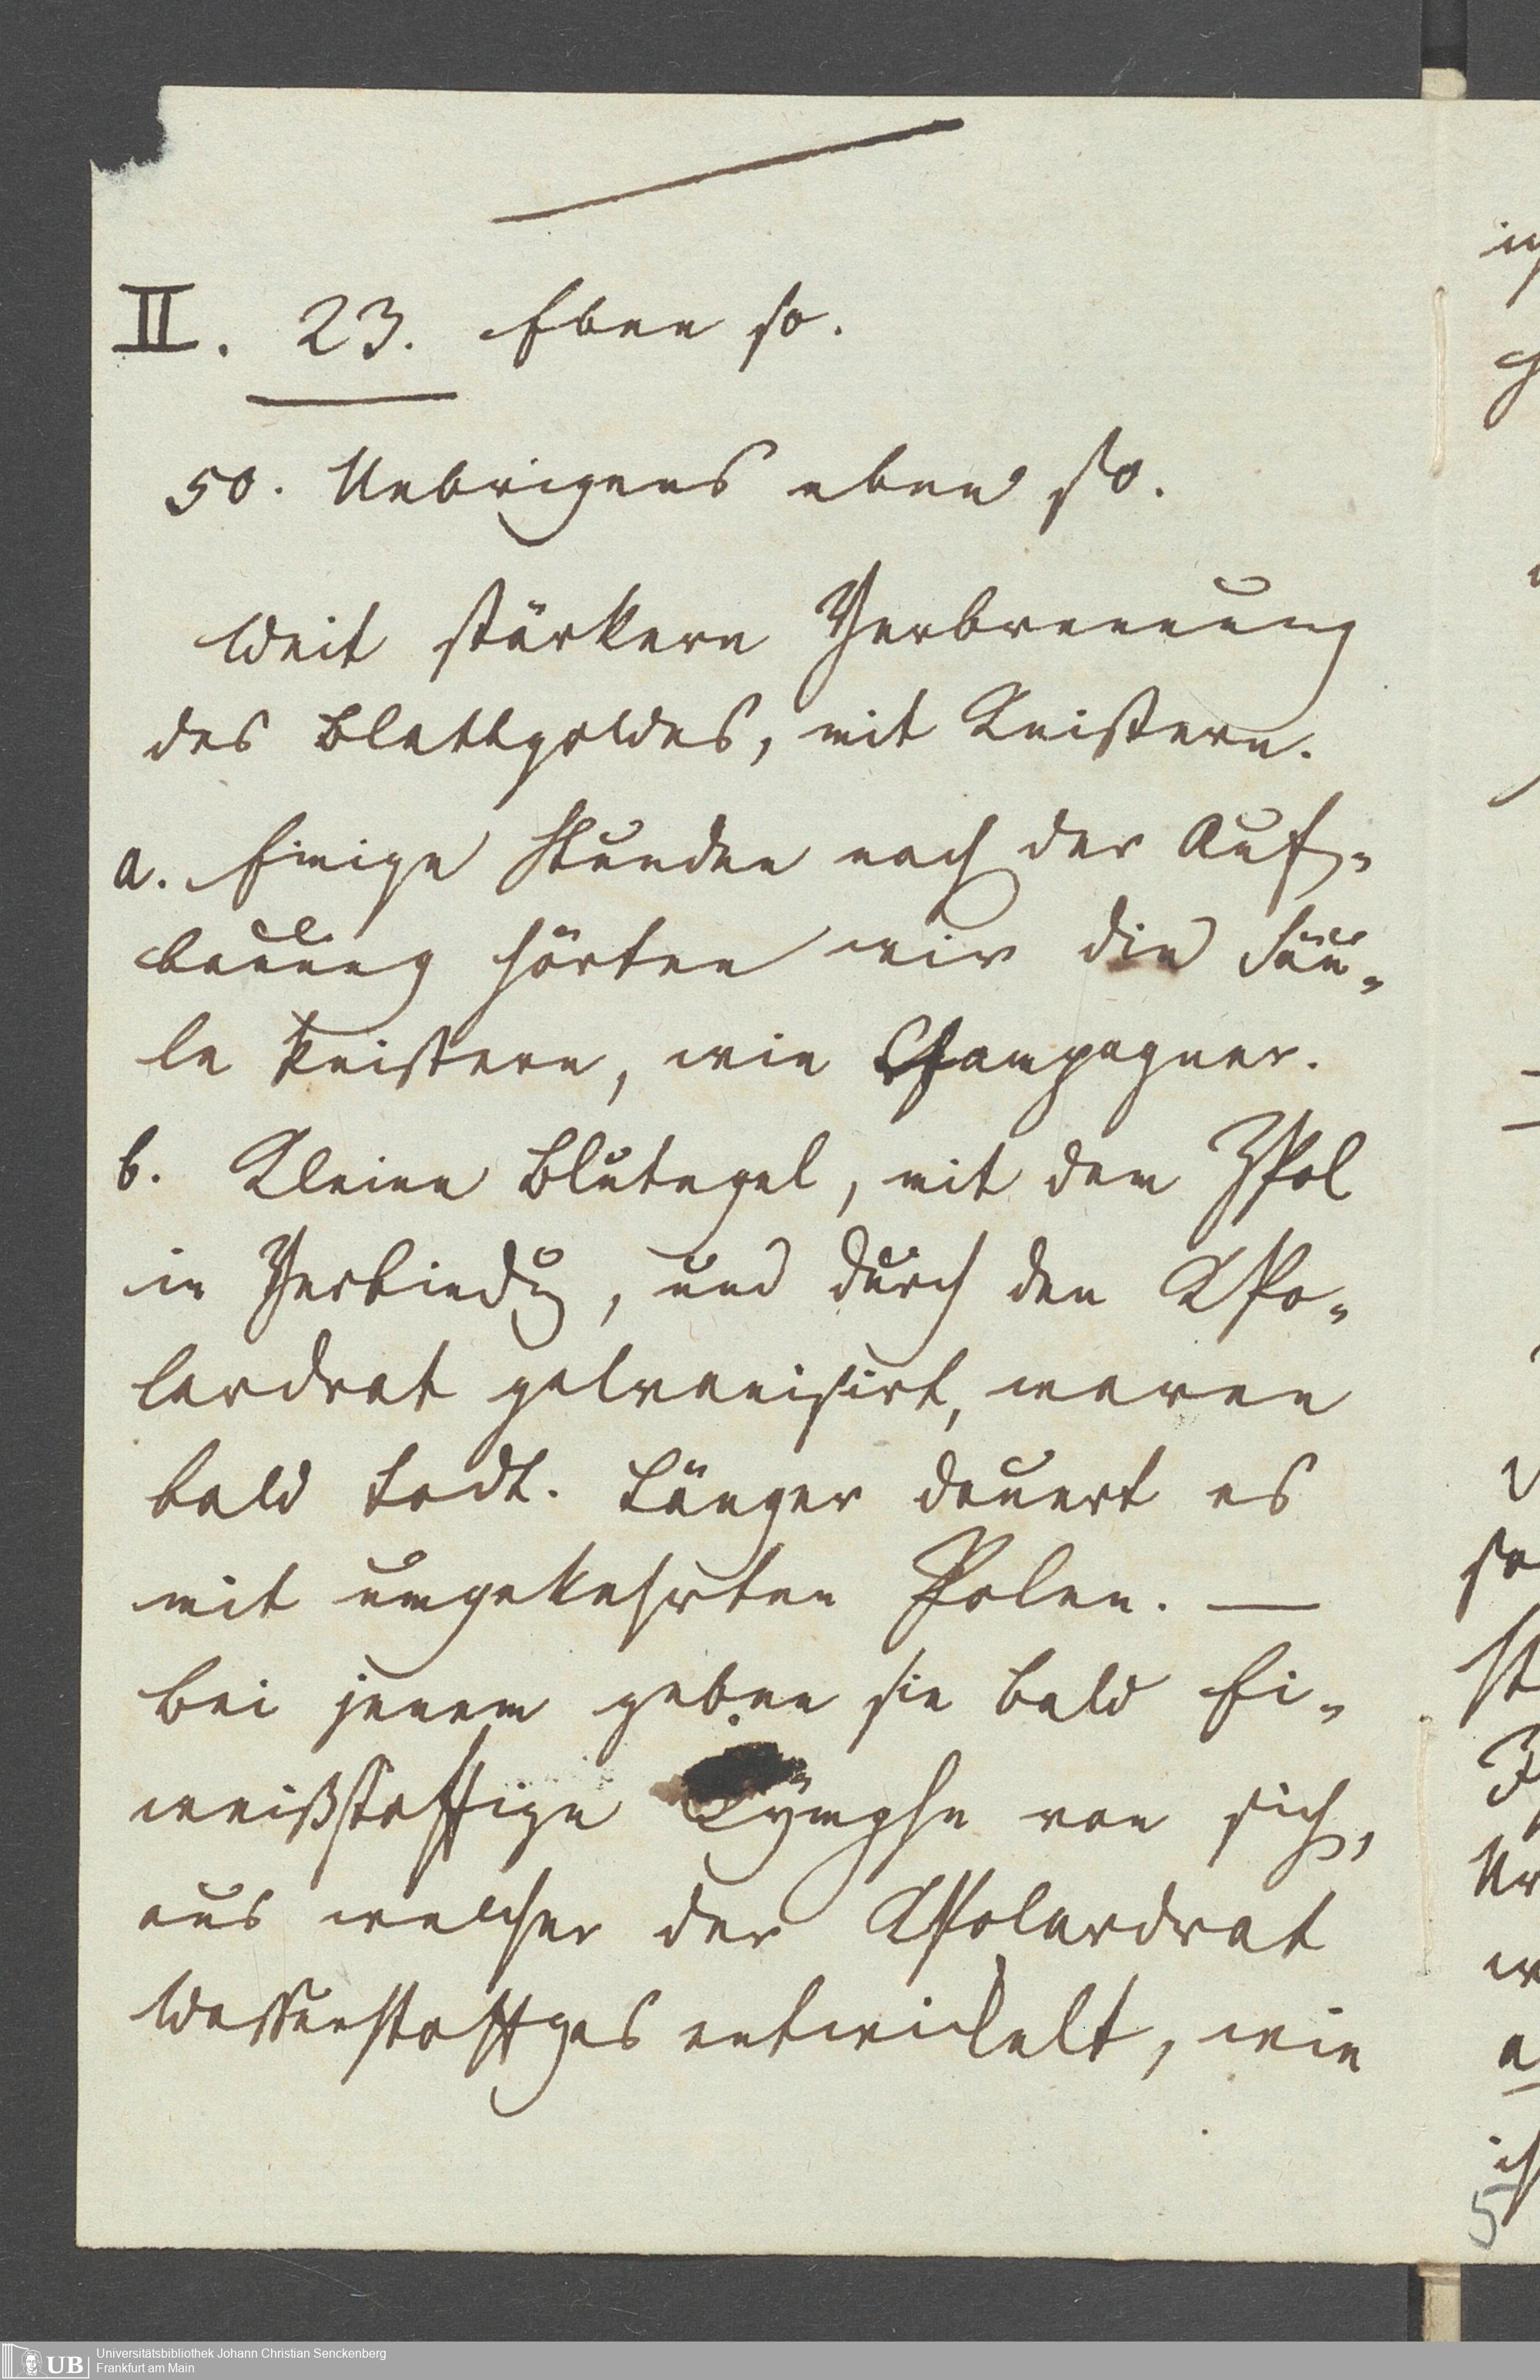 II. 23. Eben so.
50. Uebrigens eben so.
Weit stärkere Verbrennung
des Blattgoldes, mit Knistern.
a. Einige Stunden nach der Auf-
bauung hörten wir die Säu-
le knistern, wie Champagner.
b. Kleine Blutegel, mit dem ZPol
in Verbindg, und durch den KPo-
lardrat galvanisirt, waren
bald todt. Länger dauert es
mit umgekehrten Polen. —
Bei jenem geben sie bald Ei-
weißstoffige Lymphe von sich,
aus welcher der KPolardrat
Wasserstoffgas entwickelt, wie
5
UB Universitätsbibliothek Johann Christian Senckenberg
Frankfurt am Main